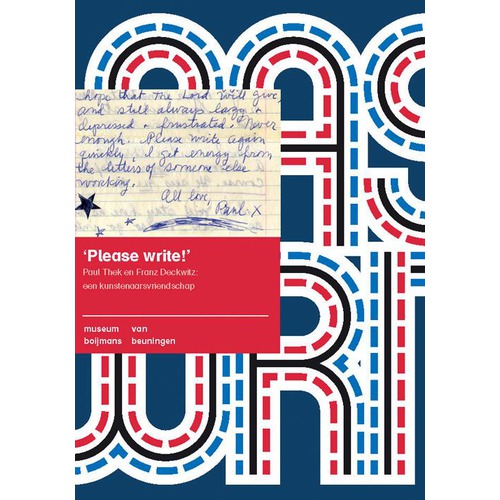 hope that the Lord will give,
and still always lazy &
depressed & frustrated. Never
enough. Please write again
quickly, I get energy from
the letters of someone else
working.
All love,
Paul X
'Please write!'
Paul Thek en Franz Deckwitz:
een kunstenaarsvriendschap
museum van
boijmans beuningen